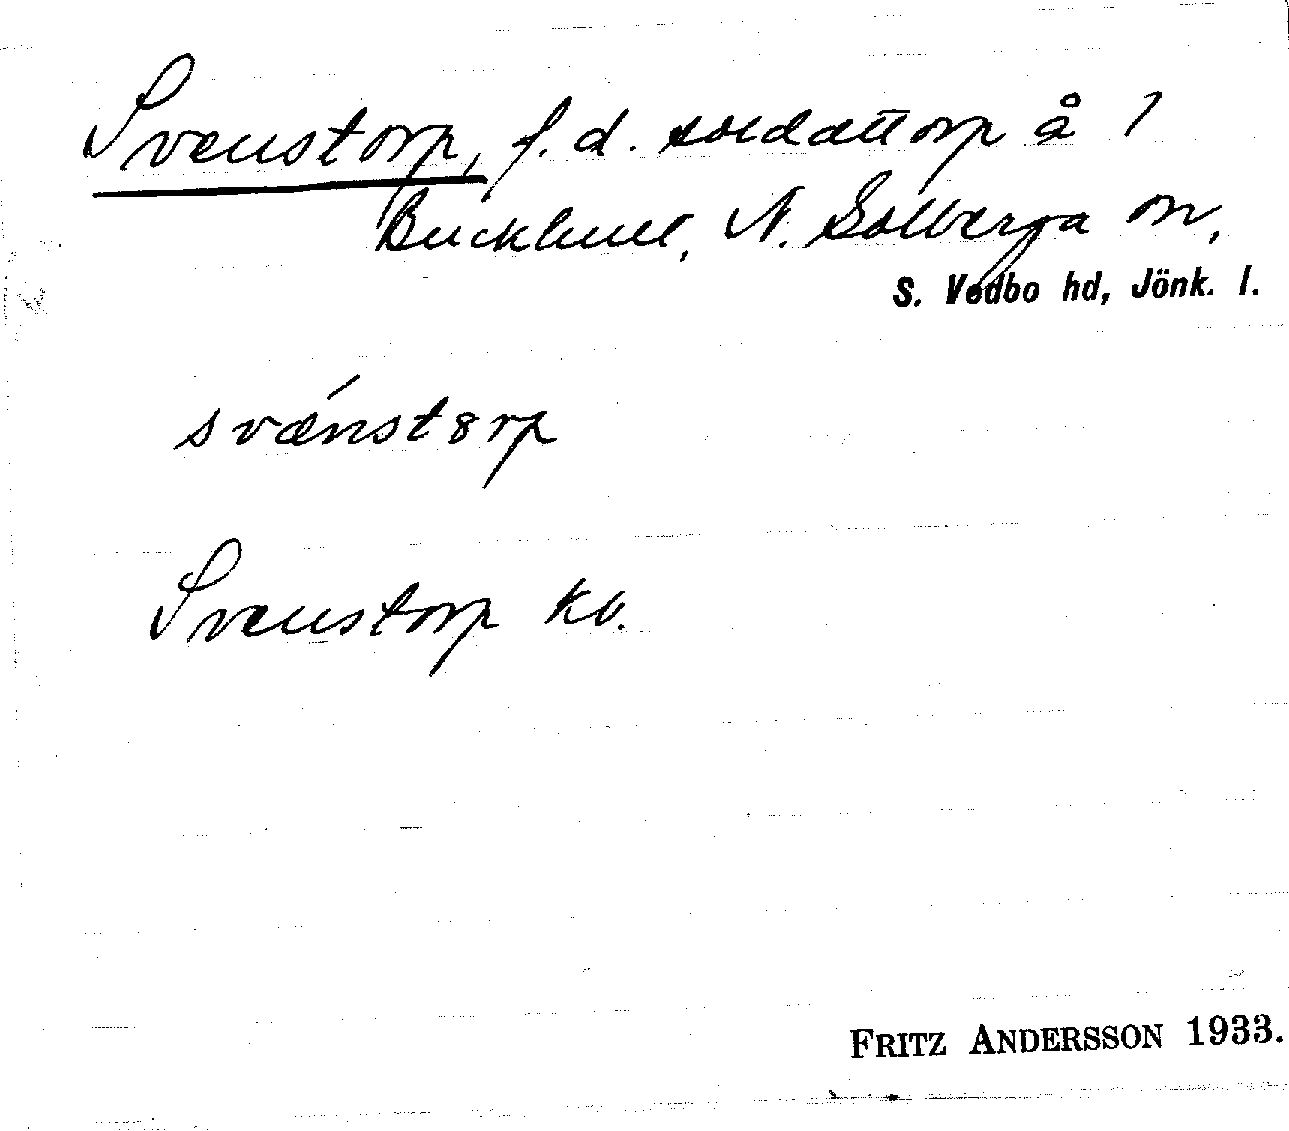 Svenstorp, f.d. soldattorp å 1
Buckhult, N. Solberga sn,
S. Vedbo hd, Jönk. l.
svǽnstȣrp
Svenstorp kb.
FRITZ ANDERSSON 1933.